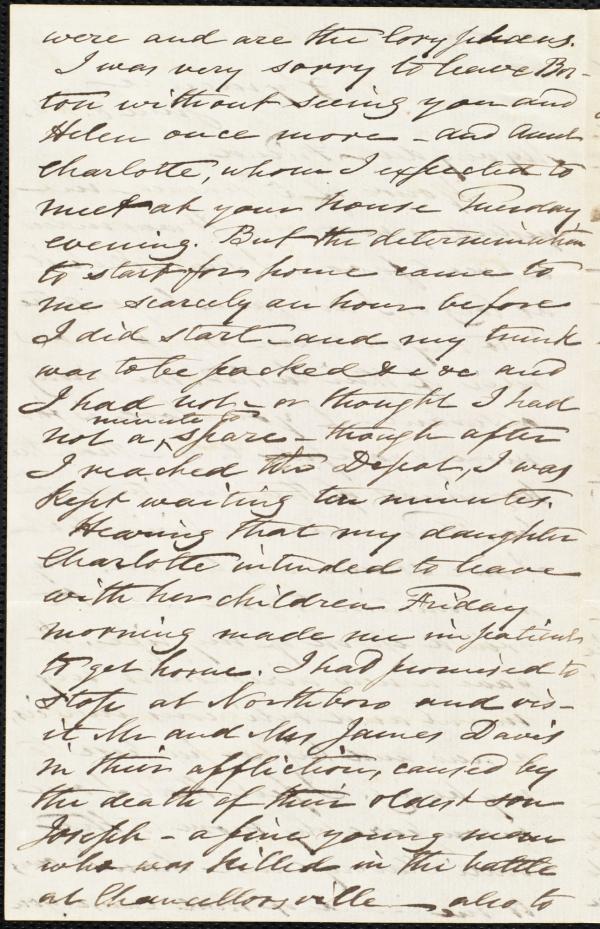 were and are the Coryphaeus.
I was very sorry to leave Bos-
ton without seeing you and
Helen once more - and Aunt
Charlotte, whom I expected to
meet at your house Tuesday
evening. But the determination
to start for home came to
me scarcely an hour before
I did start - and my trunk
was to be packed &c &c and
I had not - or thought I had
minute to
not a ^ spare - though after
I reached the Depot, I was
kept waiting ten minutes.
Hearing that my daughter
Charlotte intended to leave
with her children Friday
morning made me impatient
to get home. I had promised to
stop at Northboro and vis-
it Mr and Mrs James Davis
in their affliction, caused by
the death of their oldest son
Joseph - a fine young man
who was killed in the battle
at Chancellorsville - also to